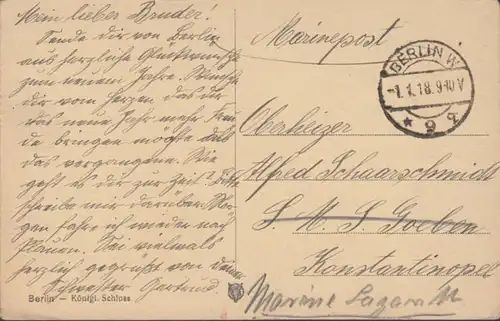 Mein lieber Bruder!
Sende dir von Berlin
aus herzliche Glückwünsche
zum neuem Jahre. Wünsche
dir vom Herzen das dir
das neue Jahr mehr Freu
de bringen möchte als
das vergangene. Wie
geht es dir zur Zeit? Bitte
schreibe mir darüber. Mor
gen fahre ich wieder nach
Plauen. Sei vielmals
herzlich gegrüßt von deiner
Schwester Gertrud.
Berlin – Königl. Schloss
Marinepost
BERLIN W
-1.1.18.9-10V
* 9 q
Oberheizer
Alfred Schaarschmidt
S. M. S. Goeben
Konstantinopel
Marine Lazarett